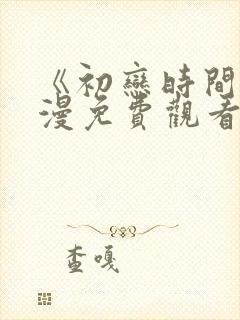 《初戀時間
漫免費觀看
查嘎